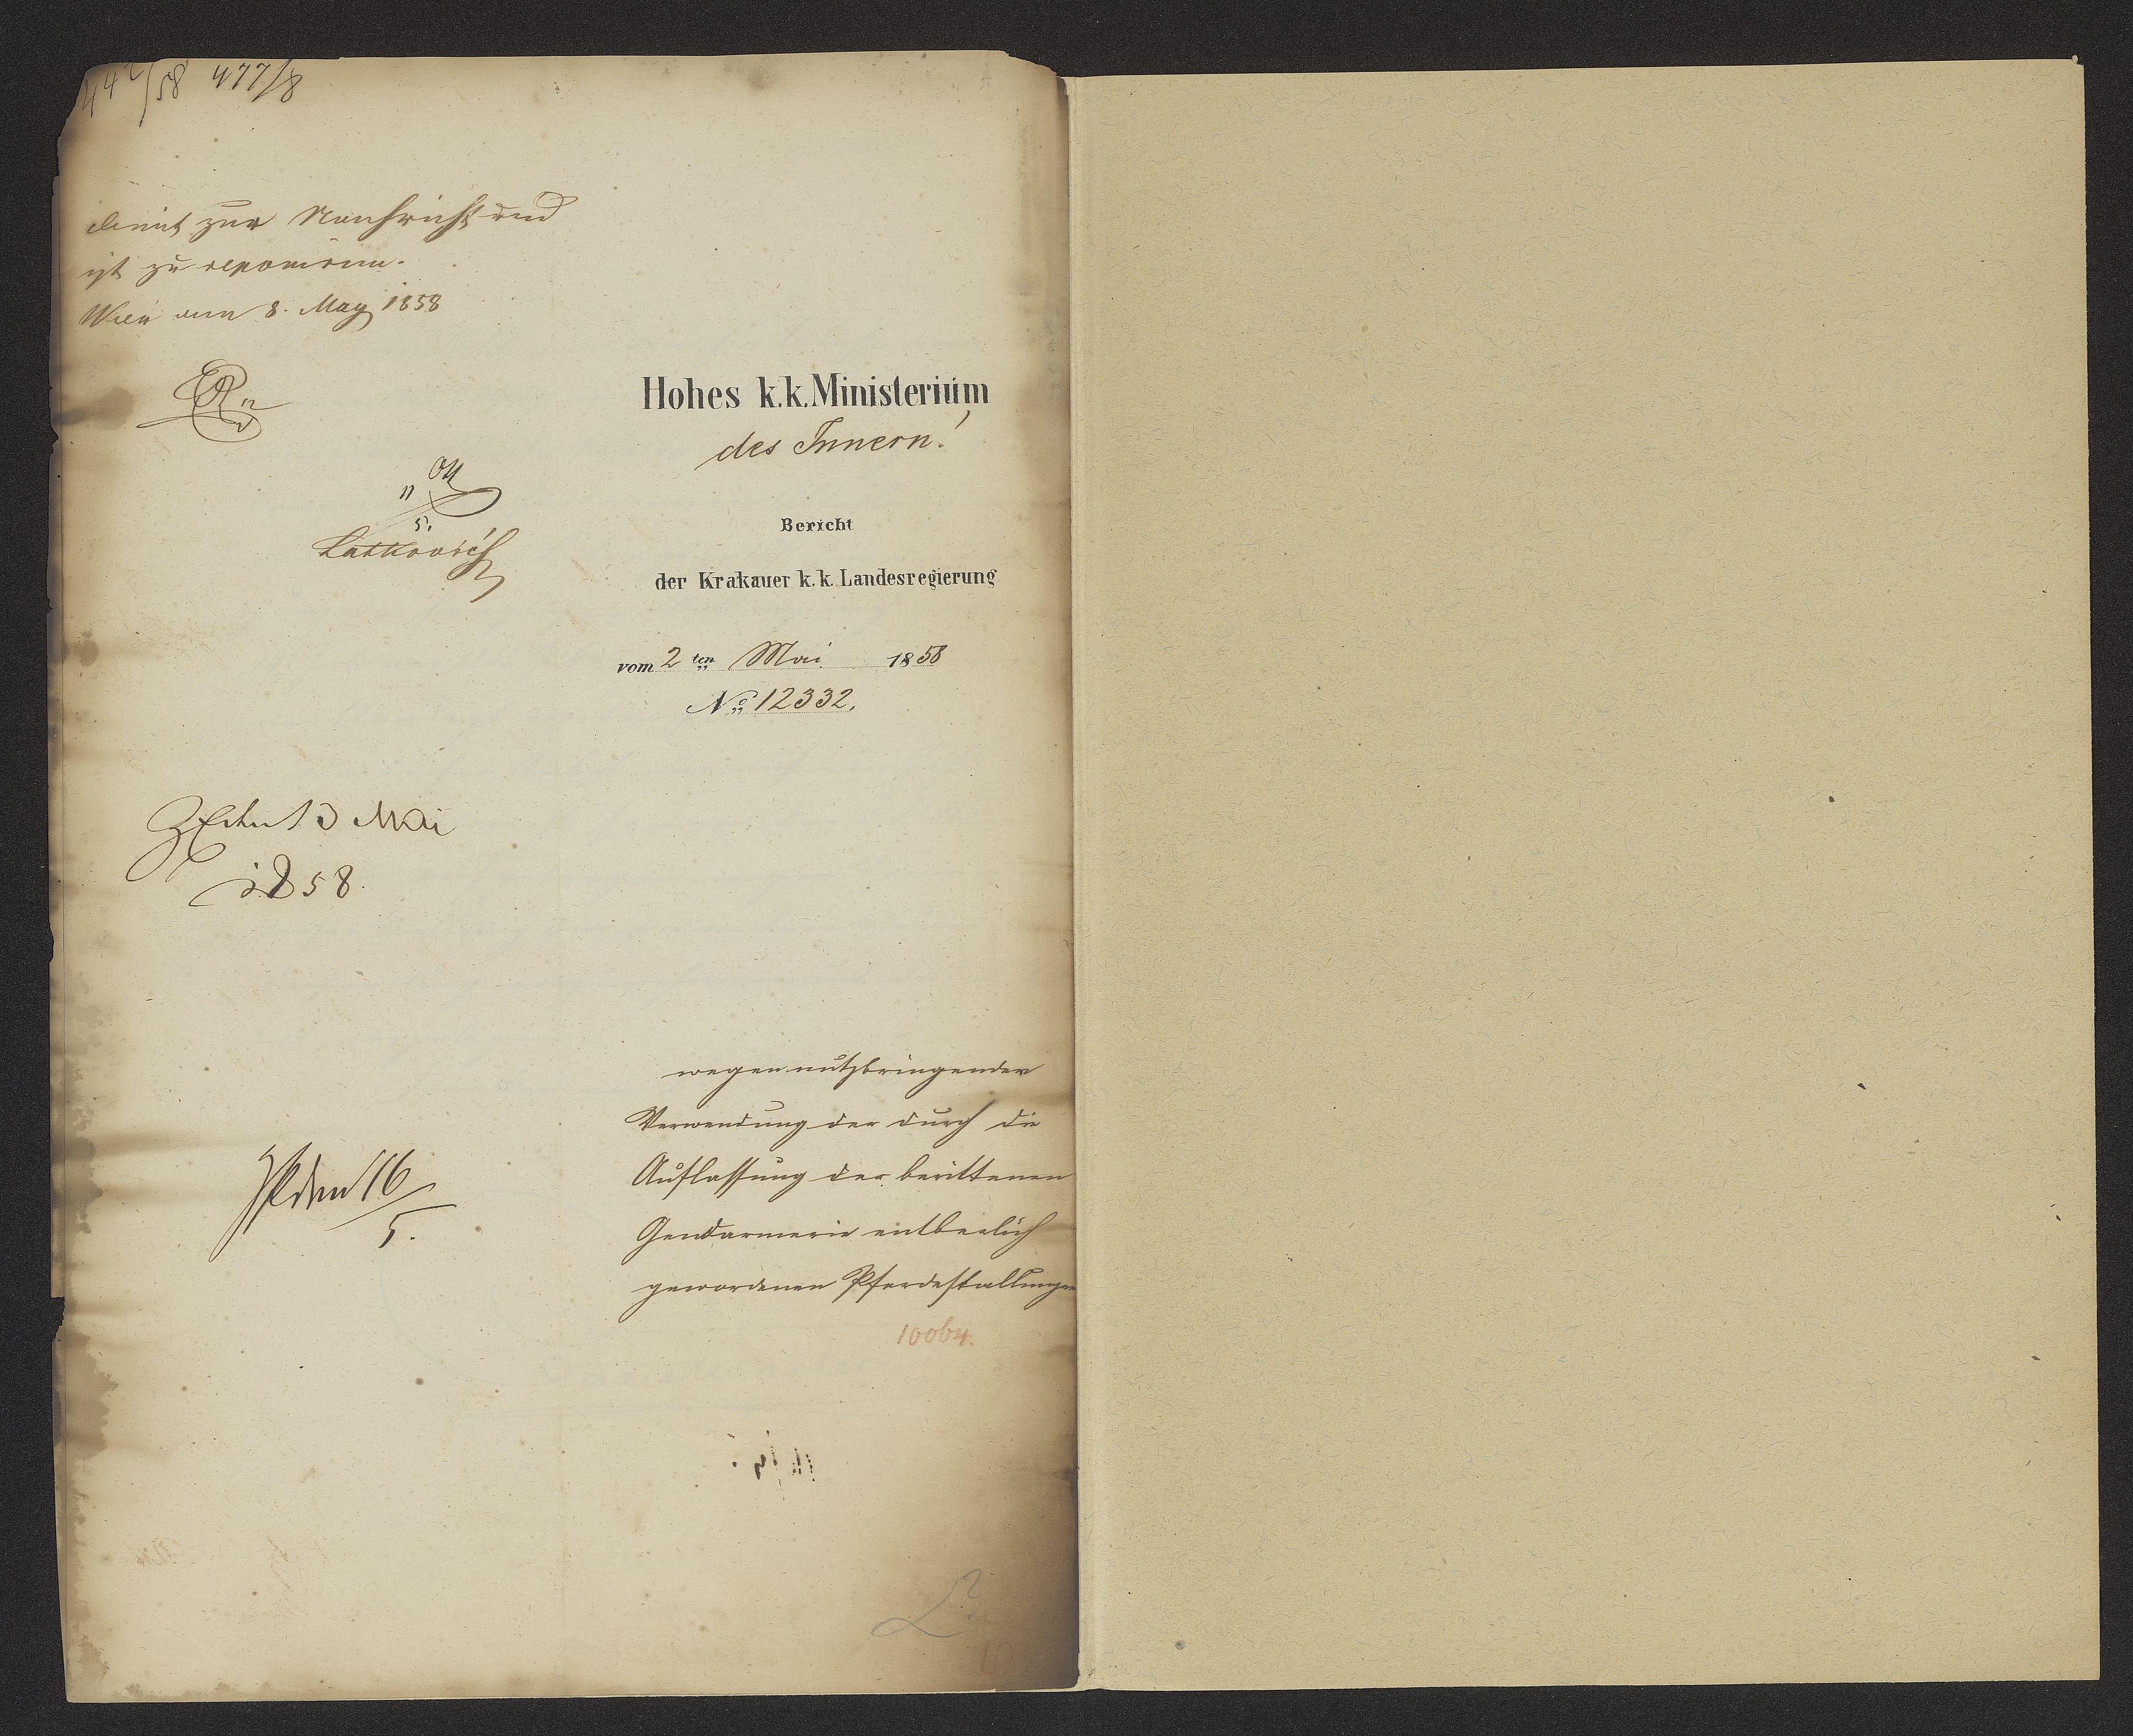 477/8
dient zur Nachricht und
ist zu reponiren.
Wien am 8. May 1858
Hohes k.k. Ministerium
des Innern!
11
5.
Latkovich
Bericht
der Krakauer k. k. Landesregierung
vom 2 ten Mai 1858
No 12332.
13 Mai
1858
wegen nutzbringender
Verwendung der durch die
Auflassung der berittenen
Gendarmerie entberlich
gewordenen Pferdestallungen
16
5.
10064.